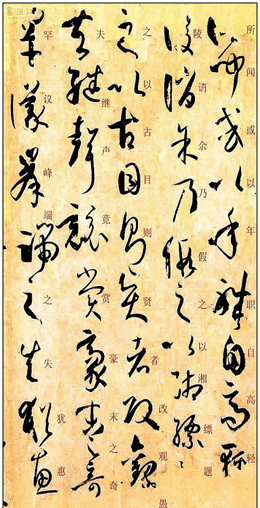 所闻或以年职自高轻
陵诮余乃假之以湘缥题
之以古目则贤者改观愚
夫继声竟赏豪末之奇
罕议峰端之失犹惠